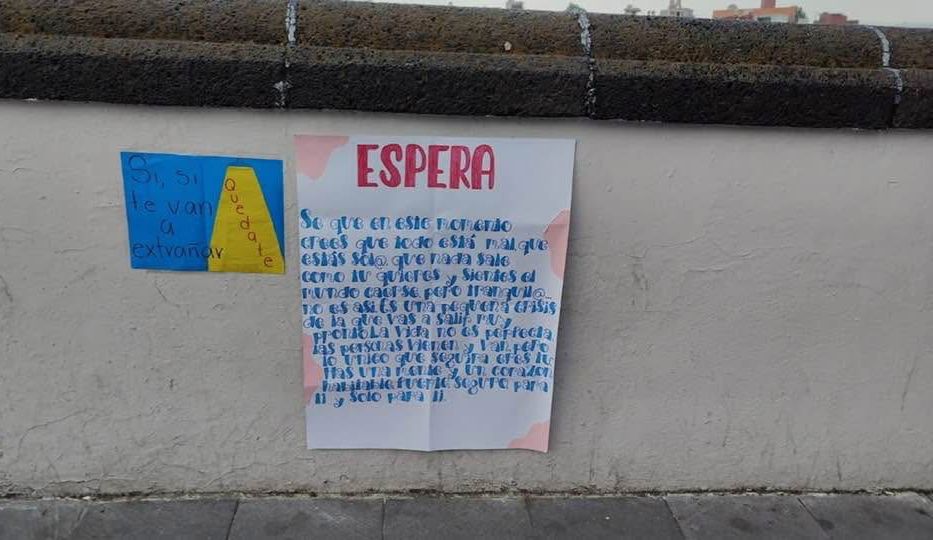 Si, si
te van
a
extrañar
Quedate
ESPERA
Se que en este momento
crees que todo está mal, que
estás sol@, que nada sale
como tu quieres y sientes el
mundo caerse, pero tranquil@...
no es así. Es una pequeña crisis
de la que vas a salir muy
pronto. La vida no es perfecta
las personas vienen y van, pero
lo unico que seguira eres tu
Has una mente y un corazon
habitable, fuerte, seguro para
ti y solo para ti.